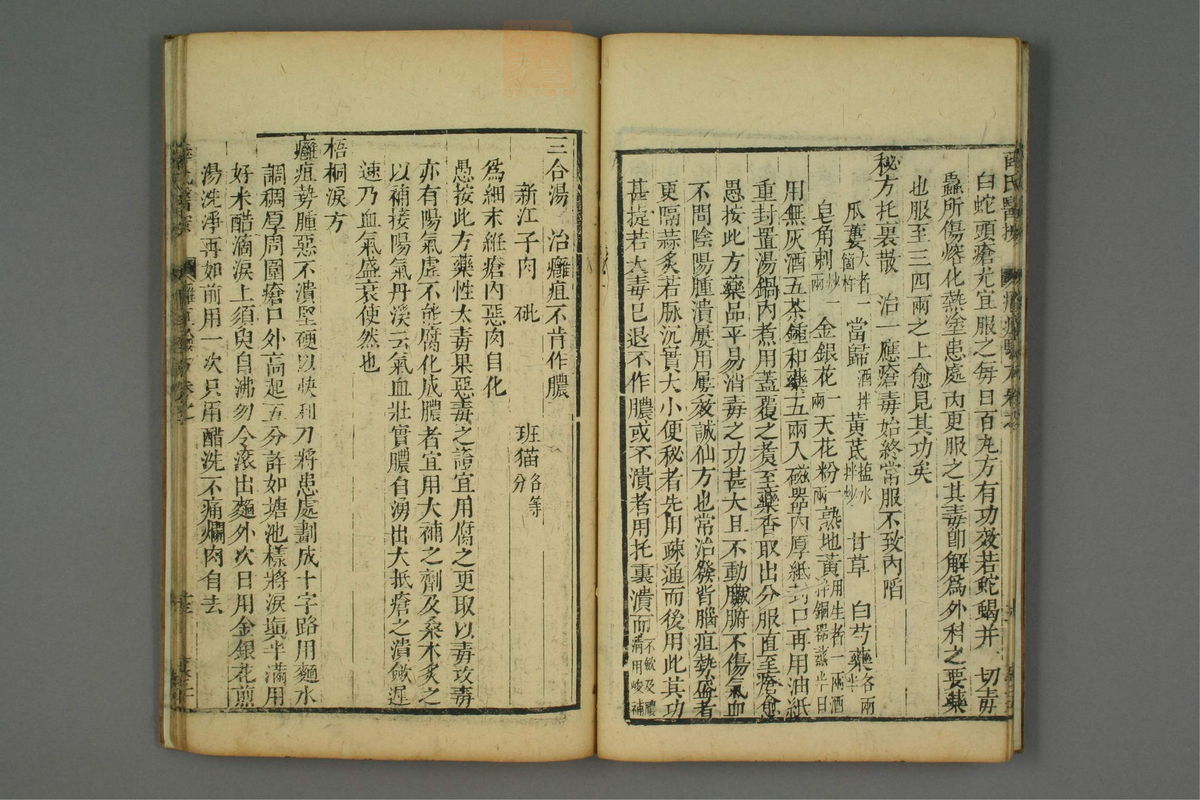 白蛇頭瘡尤宜服之每日百九方有功效若蛇蝎并一切毒
蟲所傷熔化熱塗患處內更服之其毒即解為外科之要藥
也服至三四兩之上愈見其功矣
秘方托裏散　治一應瘡毒始終常服不致內陷
瓜蔞大者一箇杵　當歸酒拌　黃芪塩水拌炒　甘草　白芍藥各兩半
皂角刺炒一兩　金銀花一兩　天花粉一兩　熟地黃用生者一兩酒拌銅器蒸半日
用無灰酒五茶鍾和藥五兩入磁器內厚紙封口再用油紙
重封置湯鍋內煮用蓋覆之煮至藥香取出分服直至瘡愈
愚按此方藥品平易消毒之功甚大且不動臟腑不傷氣血
不問陰陽腫潰屢用屢效誠仙方也常治發背腦疽勢盛者
更隔蒜炙若脉沉實大小便秘者先用疎通而後用此其功
甚捷若大毒已退不作膿或不潰者用托裏潰而不斂及膿清用峻補
三合湯　治癰疽不肯作膿
新江子肉　砒　班猫各等分
為細末維瘡內惡肉自化
愚按此方藥性大毒果惡毒之證宜用腐之更取以毒攻毒
亦有陽氣虛不能腐化成膿者宜用大補之劑及桑木炙之
以補接陽氣丹溪云氣血壯實膿自湧出大抵瘡之潰斂遲
速乃血氣盛衰使然也
梧桐淚方
癰疽勢腫惡不潰堅硬以快利刀將患處劃成十字路用麵水
調稠厚周圍瘡口外高起五分許如塘池樣將淚塡半滿用
好米醋滴淚上須臾自沸勿令滾出麵外次日用金銀花煎
湯洗淨再如前用一次只用醋洗不痛爛肉自去